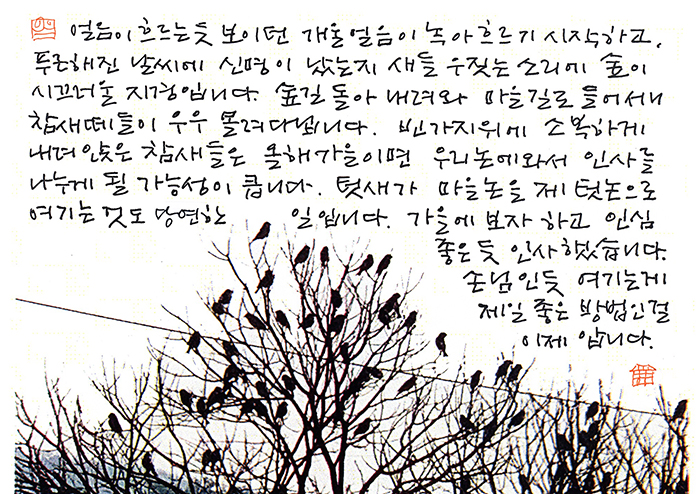 얼음이 흐르는듯 보이던 개울얼음이 녹아흐르기 시작하고,
푸근해진 날씨에 신명이 났는지 새들 우짖는 소리에 숲이
시끄러울 지경입니다. 숲길 돌아 내려와 마을길로 들어서니
참새떼들이 우우 몰려다닙니다. 빈가지위에 소복하게
내려앉은 참새들은 올해가을이면 우리논에와서 인사를
나누게 될 가능성이 큽니다. 텃새가 마을논을 제 텃논으로
여기는 것도 당연한 일입니다. 가을에 보자 하고 인심
좋은듯 인사했습니다.
손님인듯 여기는게
제일 좋은 방법인걸
이제 압니다.